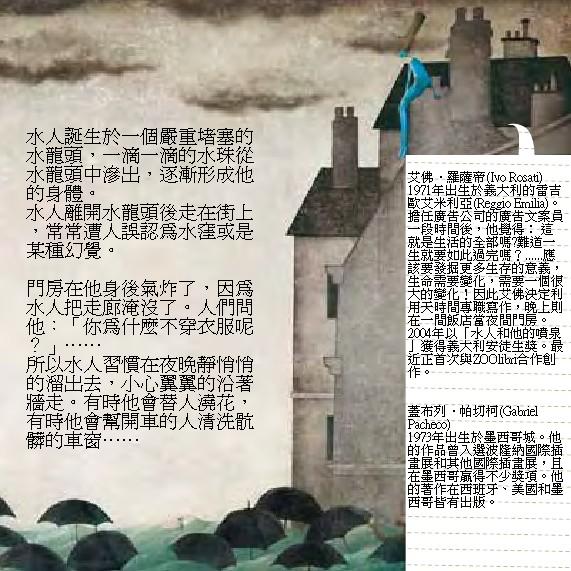 水人誕生於一個嚴重堵塞的
水龍頭，一滴一滴的水珠從
水龍頭中滲出，逐漸形成他
的身體。
水人離開水龍頭後走在街上
，常常遭人誤認爲水窪或是
某種幻覺。
門房在他身後氣炸了，因爲
水人把走廊淹沒了。人們問
他：「你爲什麼不穿衣服呢
？」……
所以水人習慣在夜晚靜悄悄
的溜出去，小心翼翼的沿著
牆走。有時他會替人澆花，
有時他會幫開車的人清洗骯
髒的車窗……
艾佛．羅薩帝(Ivo Rosati)
1971年出生於義大利的雷吉
歐艾米利亞(Reggio Emilia)。
擔任廣告公司的廣告文案員
一段時間後，他覺得： 這
就是生活的全部嗎?難道一
生就要如此過完嗎？……應
該要發掘更多生存的意義，
生命需要變化，需要一個很
大的變化！因此艾佛決定利
用天時間專職寫作，晚上則
在一間飯店當夜間門房。
2004年以「水人和他的噴泉
」獲得義大利安徒生獎。最
近正首次與ZOOlibri合作創
作。
蓋布列．帕切柯(Gabriel
Pacheco)
1973年出生於墨西哥城。他
的作品曾入選波隆納國際插
畫展和其他國際插畫展，且
在墨西哥贏得不少獎項。他
的著作在西班牙、美國和墨
西哥皆有出版。